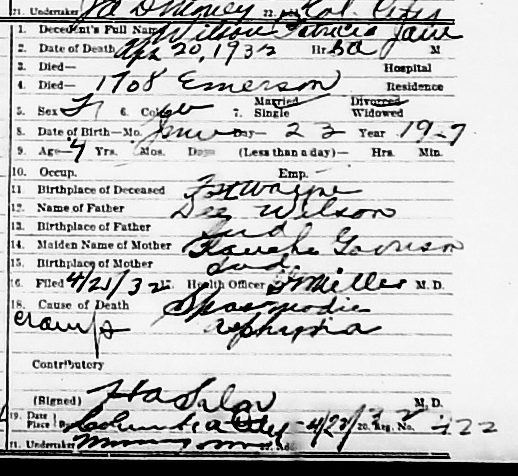 21. Undertaker
1. Decedent's Full Name Wilson Patricia Jane
2. Date of Death Apr 20, 1932 Hr. 3a M
3. Died— Hospital
4. Died— 1708 Emerson Residence
5. Sex F 6. Color w 7. Married Single Divorced Widowed
8. Date of Birth—Mo. Day 23 Year 1927
9. Age 4 Yrs. Mos. Days (Less than a day)— Hrs. Min.
10. Occup. Emp.
11 Birthplace of Deceased Fort Wayne
12. Name of Father Dee Wilson
13. Birthplace of Father Ind
14. Maiden Name of Mother Garrison
15. Birthplace of Mother Ind
16. Filed 4/21/32 Health Officer Miller M. D.
18. Cause of Death Spasmodic
croup
Contributory
(Signed) M. D.
19. Date Place Columbia City - 4/22/32 20. Reg. No.
21. Undertaker